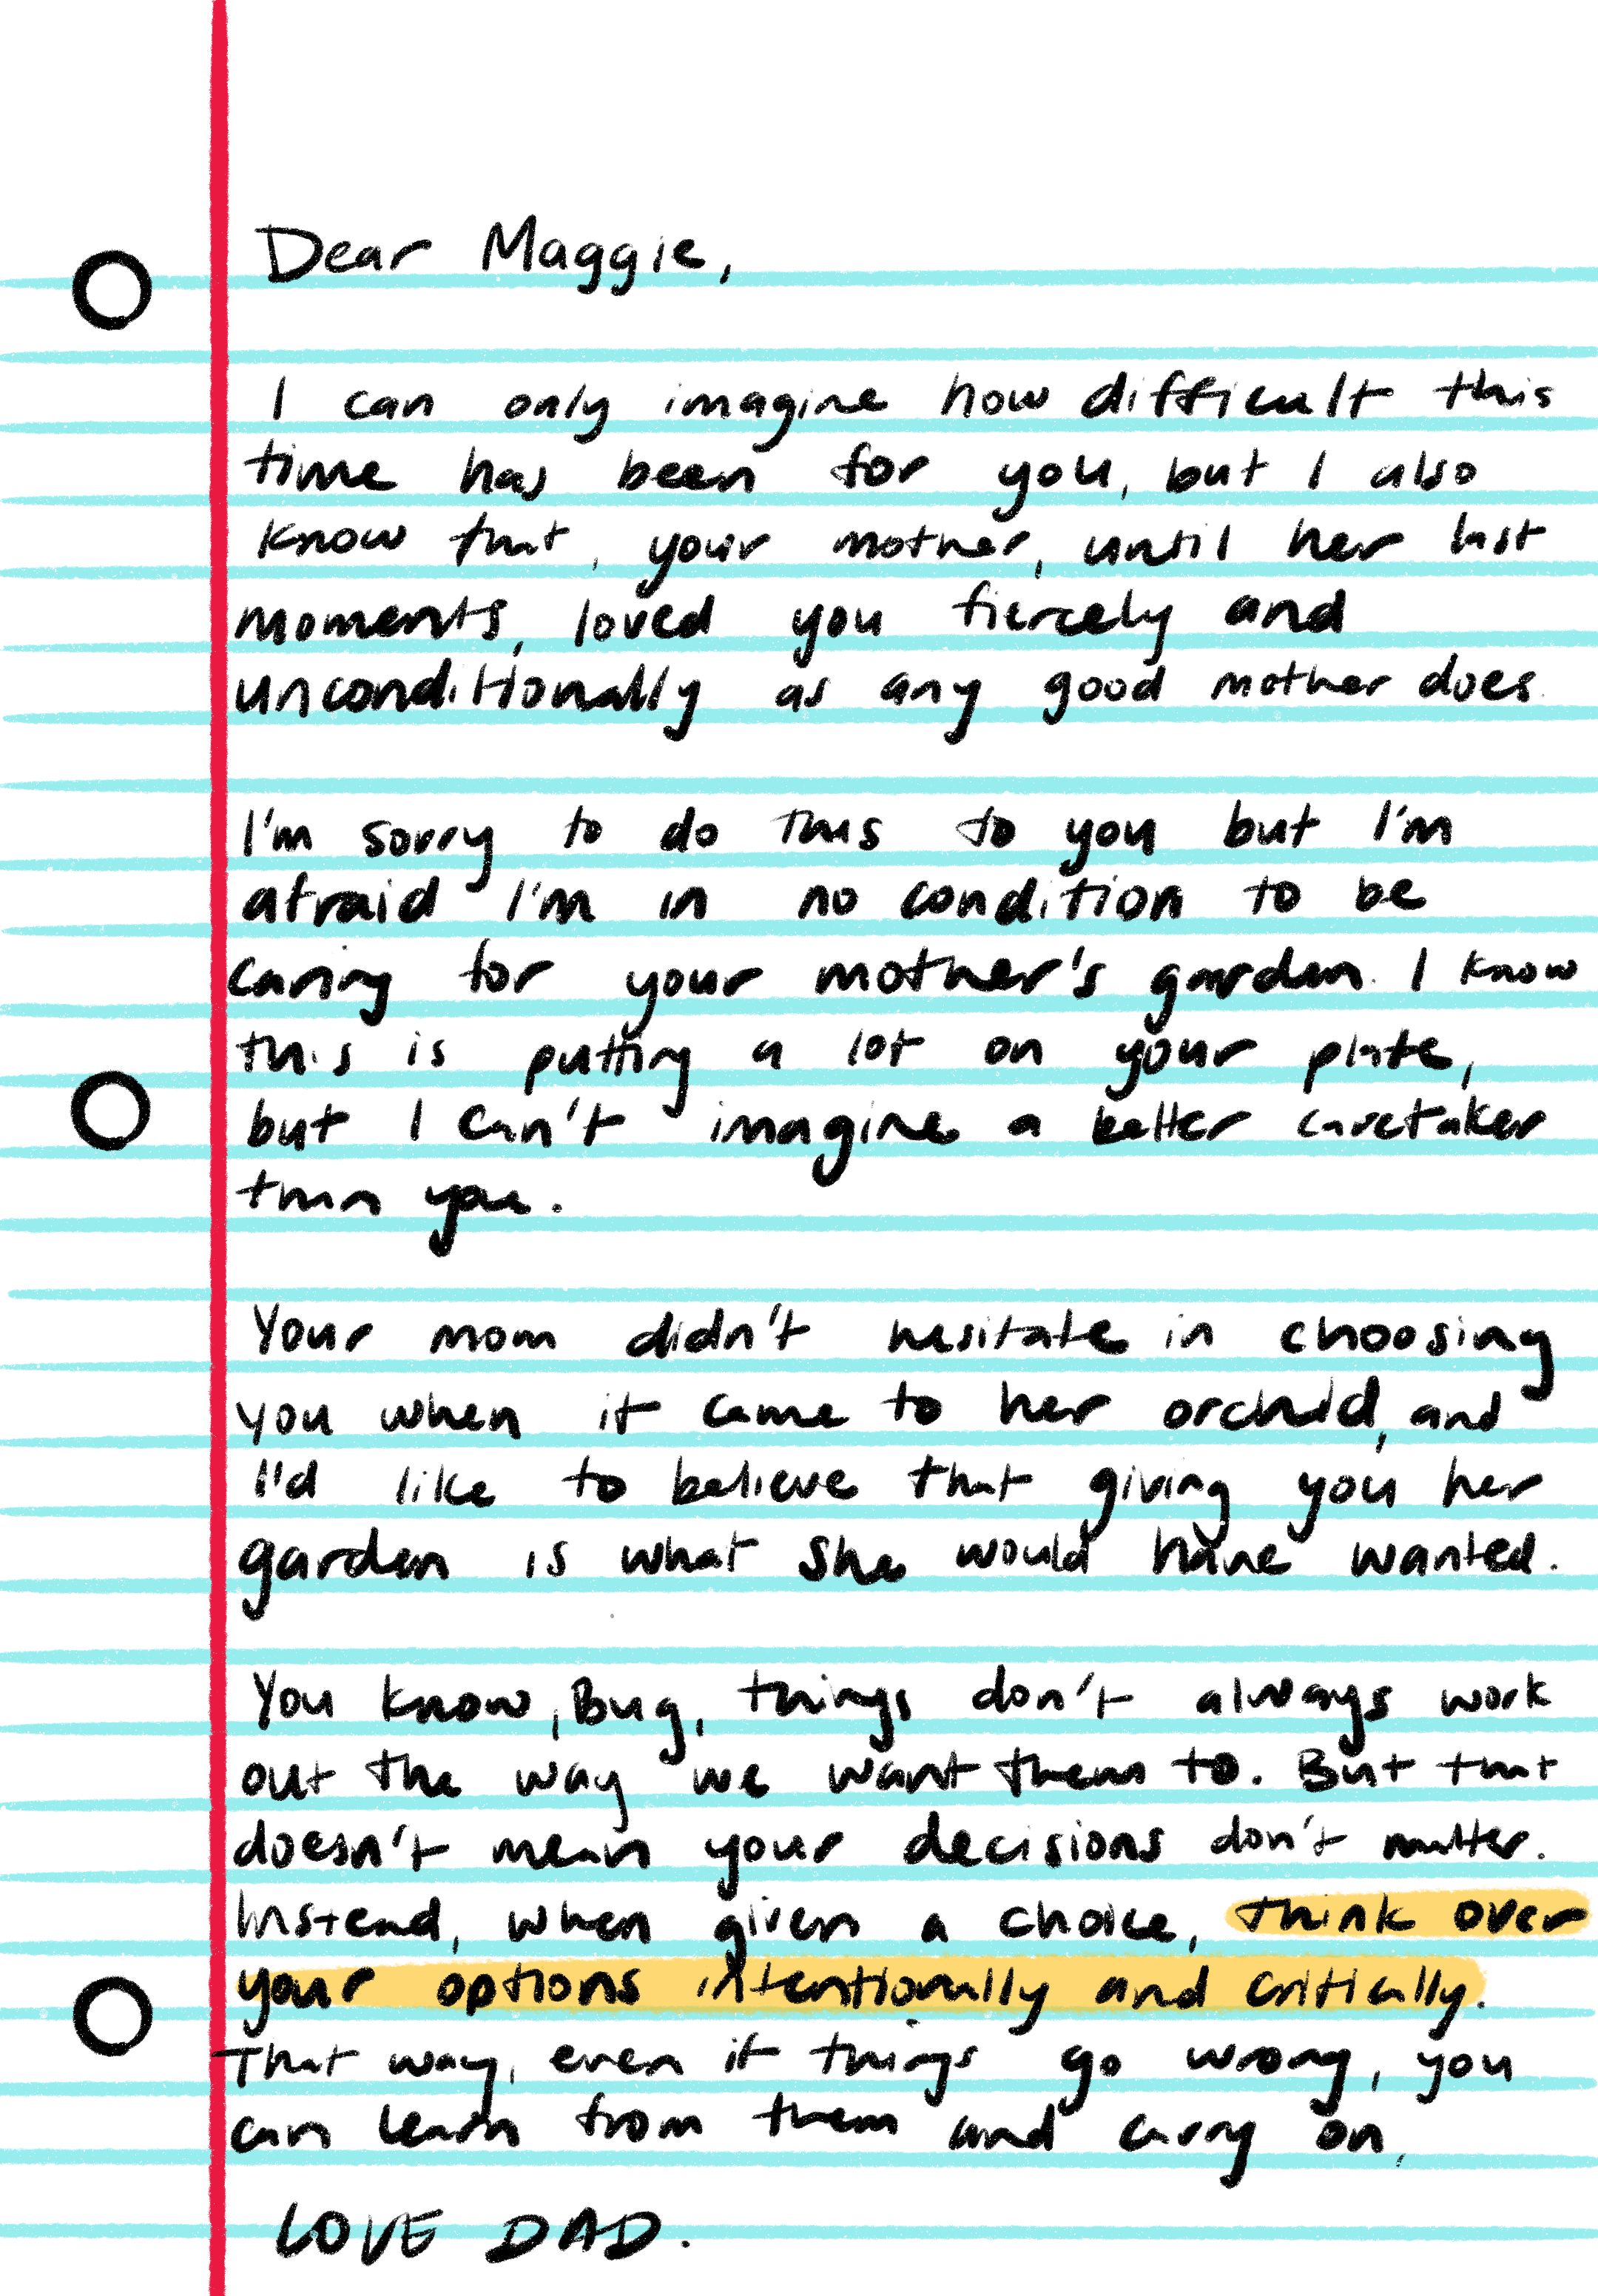 Dear Maggie,
I can only imagine how difficult this
time has been for you, but I also
know that, your mother, until her last
moments, loved you fiercely and
unconditionally as any good mother does.
I'm sorry to do this to you but I'm
afraid I'm in no condition to be
caring for your mother's garden. I know
this is putting a lot on your plate,
but I can't imagine a better caretaker
than you.
Your mom didn't hesitate in choosing
you when it came to her orchid, and
I'd like to believe that giving you her
garden is what she would have wanted.
You know, Bug, things don't always work
out the way we want them to. But that
doesn't mean your decisions don't matter.
Instead, when given a choice, think over
your options intentionally and critically.
That way, even if things go wrong, you
can learn from them and carry on,
LOVE DAD.